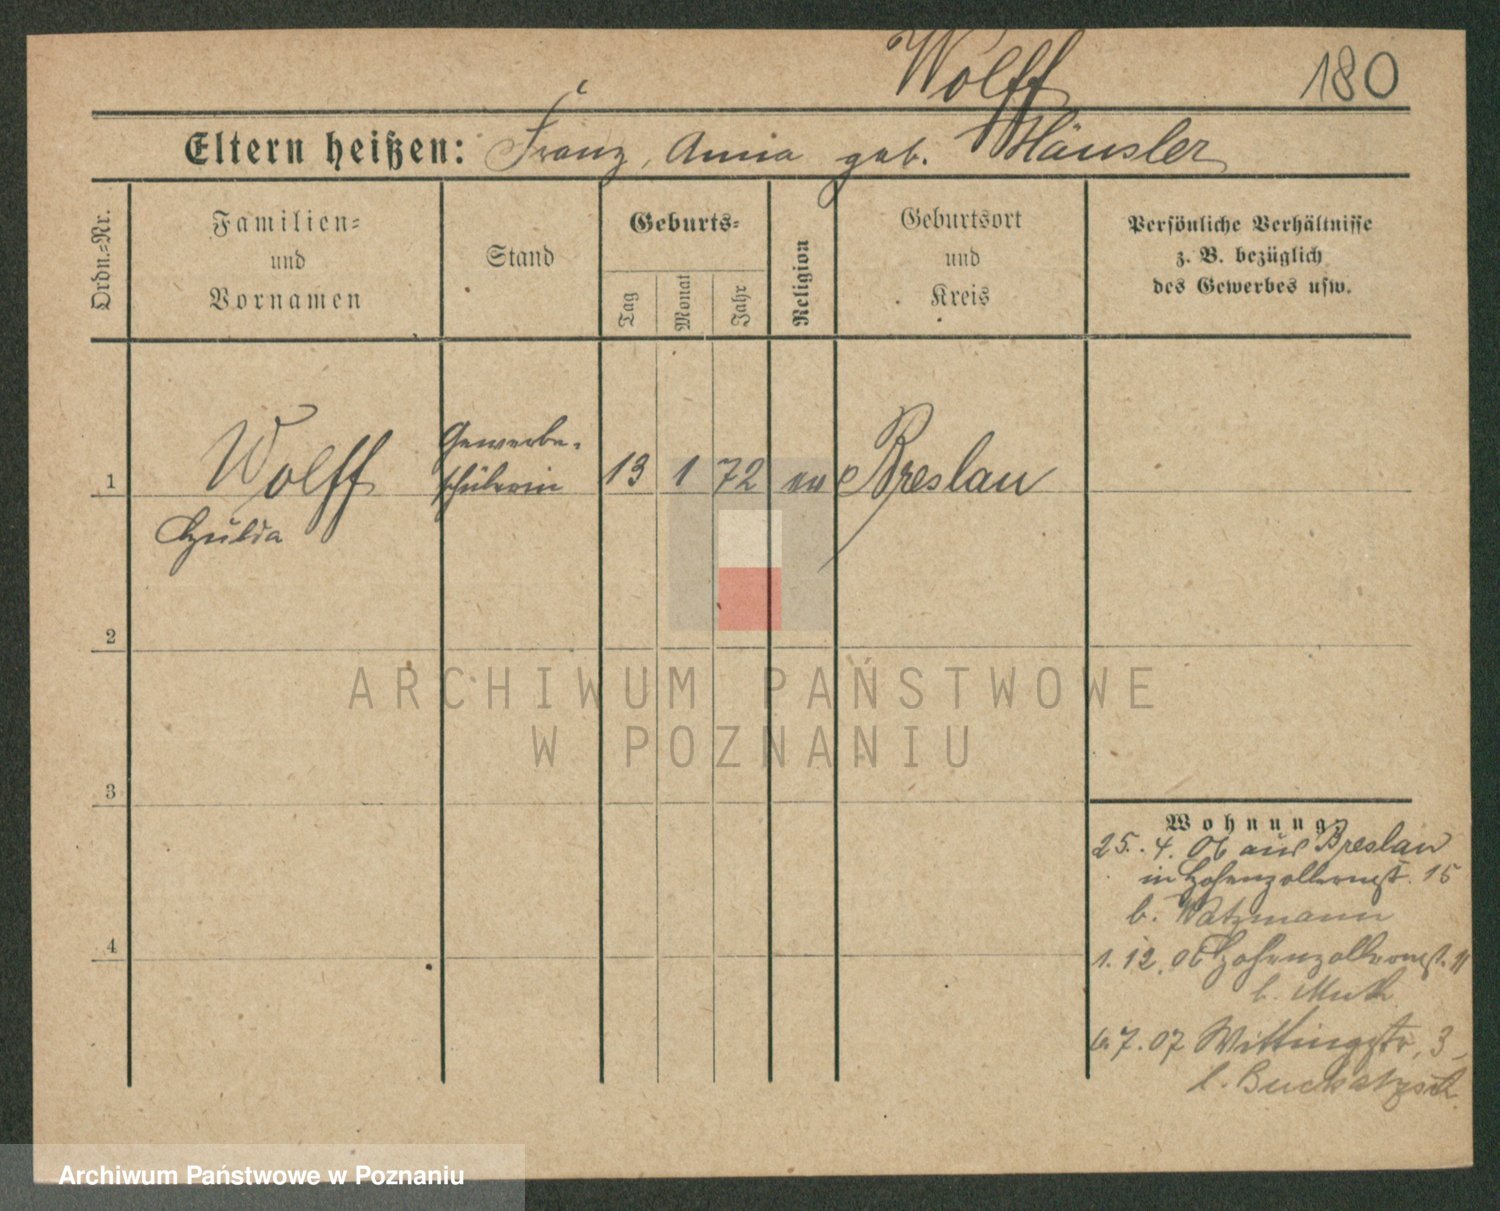 Wolff 180
Eltern heißen: Franz, Anna geb. Häusler
Ordn.-Nr.
Familien-
und
Vornamen
Stand
Geburts-
Tag
Monat
Jahr
Religion
Geburtsort
und
Kreis
Persönliche Verhältnisse
z. B. bezüglich
des Gewerbes usw.
1 Wolff
Hulda
Gewerbe-
schülerin
13 1 72 ev Breslau
2
ARCHIWUM PAŃSTWOWE
W POZNANIU
3
4
Wohnung
25. 4. 06 aus Breslau
in Hohenzollernst. 15
b. Watzmann
1. 12. 06 Hohenzollernst. 11
b. Muth
7. 07 Wittingstr. 3
b.
Archiwum Państwowe w Poznaniu